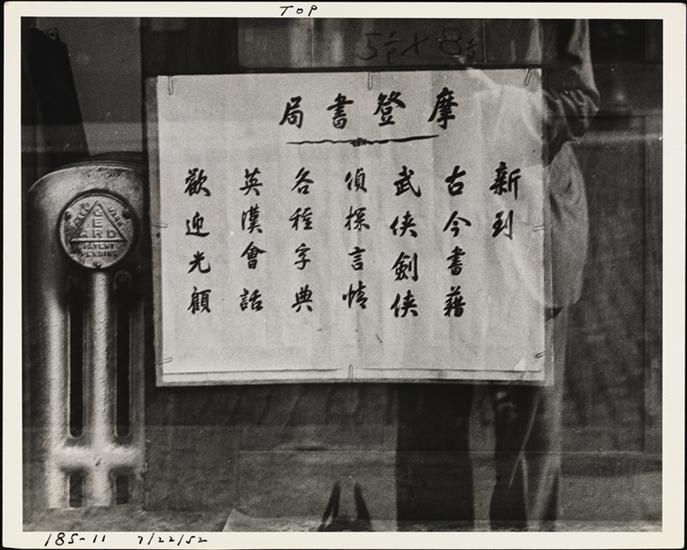 TOP
5½ X 8½
摩登書局
新到
古今書藉
武俠劍俠
偵探言情
各種字典
英漢會話
歡迎光顧
PATENT
PENDING
185-11 7/22/52